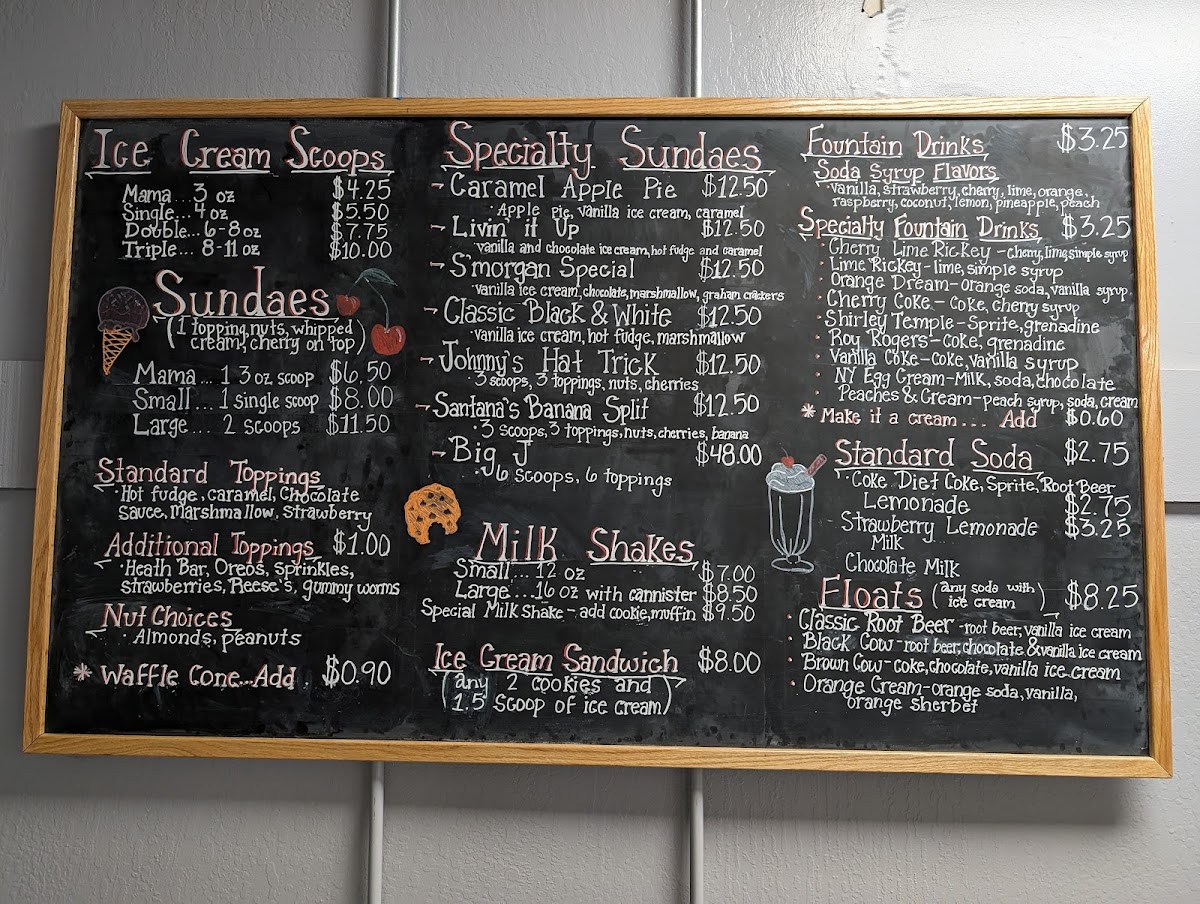 Ice Cream Scoops
Mama...3 oz $4.25
Single...4 oz $5.50
Double...6-8 oz $7.75
Triple...8-11 oz $10.00
Sundaes
(1 topping, nuts, whipped
cream, cherry on top)
Mama...1 3 oz scoop $6.50
Small...1 single scoop $8.00
Large....2 scoops $11.50
Standard Toppings
· Hot fudge, caramel, Chocolate
sauce, Marshmallow, Strawberry
Additional Toppings $1.00
· Heath Bar, Oreos, sprinkles,
strawberries, Reese's, gummy worms
Nut Choices
· Almonds, peanuts
* Waffle Cone...Add $0.90
Specialty Sundaes
- Caramel Apple Pie $12.50
· Apple pie, vanilla ice cream, caramel
- Livin' it Up $12.50
· vanilla and chocolate ice cream, hot fudge and caramel
- S'morgan Special $12.50
· vanilla ice cream, chocolate, marshmallow, graham crackers
- Classic Black & White $12.50
· vanilla ice cream, hot fudge, marshmallow
- Johnny's Hat Trick $12.50
· 3 scoops, 3 toppings, nuts, cherries
- Santana's Banana Split $12.50
· 3 scoops, 3 toppings, nuts, cherries, banana
- Big J $48.00
· 6 scoops, 6 toppings
Milk Shakes
Small...12 oz $7.00
Large...16 oz with cannister $8.50
Special Milk Shake - add cookie, muffin $9.50
Ice Cream Sandwich $8.00
(any 2 cookies and
1.5 scoop of ice cream)
Fountain Drinks $3.25
Soda Syrup Flavors
· vanilla, strawberry, cherry, lime, orange,
raspberry, coconut, lemon, pineapple, peach
Specialty Fountain Drinks $3.25
· Cherry Lime Rickey - cherry, lime, simple syrup
· Lime Rickey - lime, simple syrup
· Orange Dream - orange soda, vanilla syrup
· Cherry Coke - coke, cherry syrup
· Shirley Temple - Sprite, grenadine
· Roy Rogers - coke, grenadine
· Vanilla Coke - coke, vanilla syrup
· NY Egg Cream - Milk, soda, chocolate
· Peaches & Cream - peach syrup, soda, cream
* Make it a cream... Add $0.60
Standard Soda $2.75
· Coke, Diet Coke, Sprite, Root Beer
Lemonade $2.75
· Strawberry Lemonade $3.25
Milk
Chocolate Milk
Floats (any soda with
ice cream) $8.25
· Classic Root Beer - root beer, vanilla ice cream
· Black Cow - root beer, chocolate & vanilla ice cream
· Brown Cow - coke, chocolate, vanilla ice cream
· Orange Cream - orange soda, vanilla,
orange sherbet